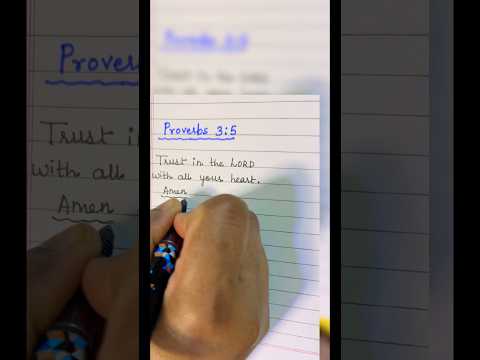 Proverbs 3:5
Trust in the LORD
with all your heart.
Amen